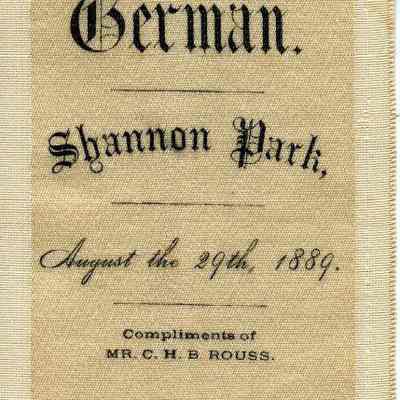 German.
Shannon Park,
August the 29th, 1889.
Compliments of
MR. C. H. B ROUSS.